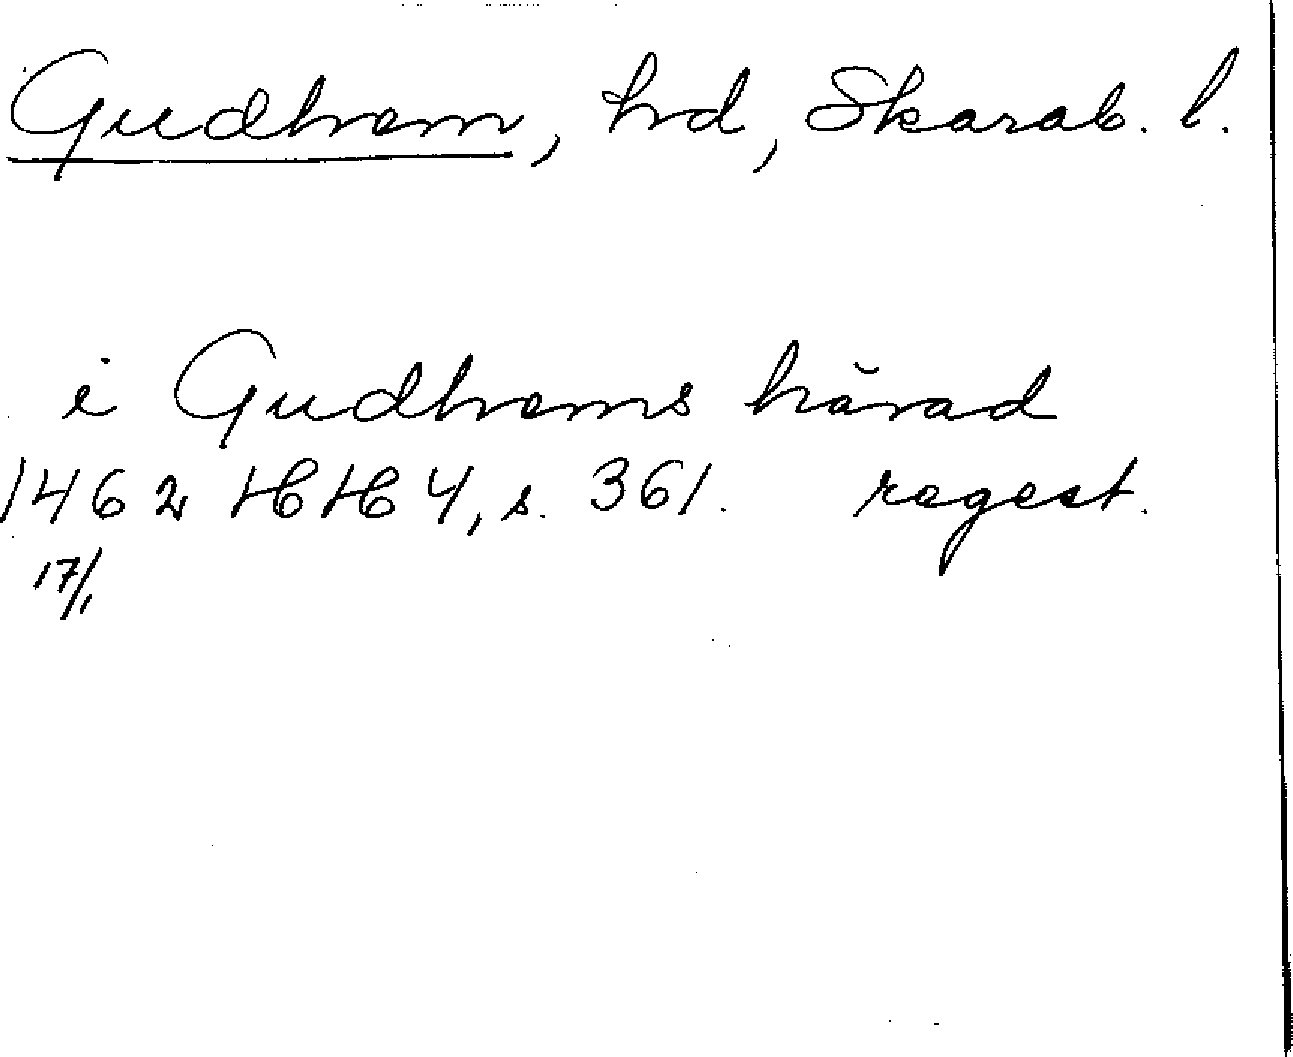 Gudhem, hd, Skarab. l.
i Gudhems härad
1462 HH 4, s. 361. regest.
17/1